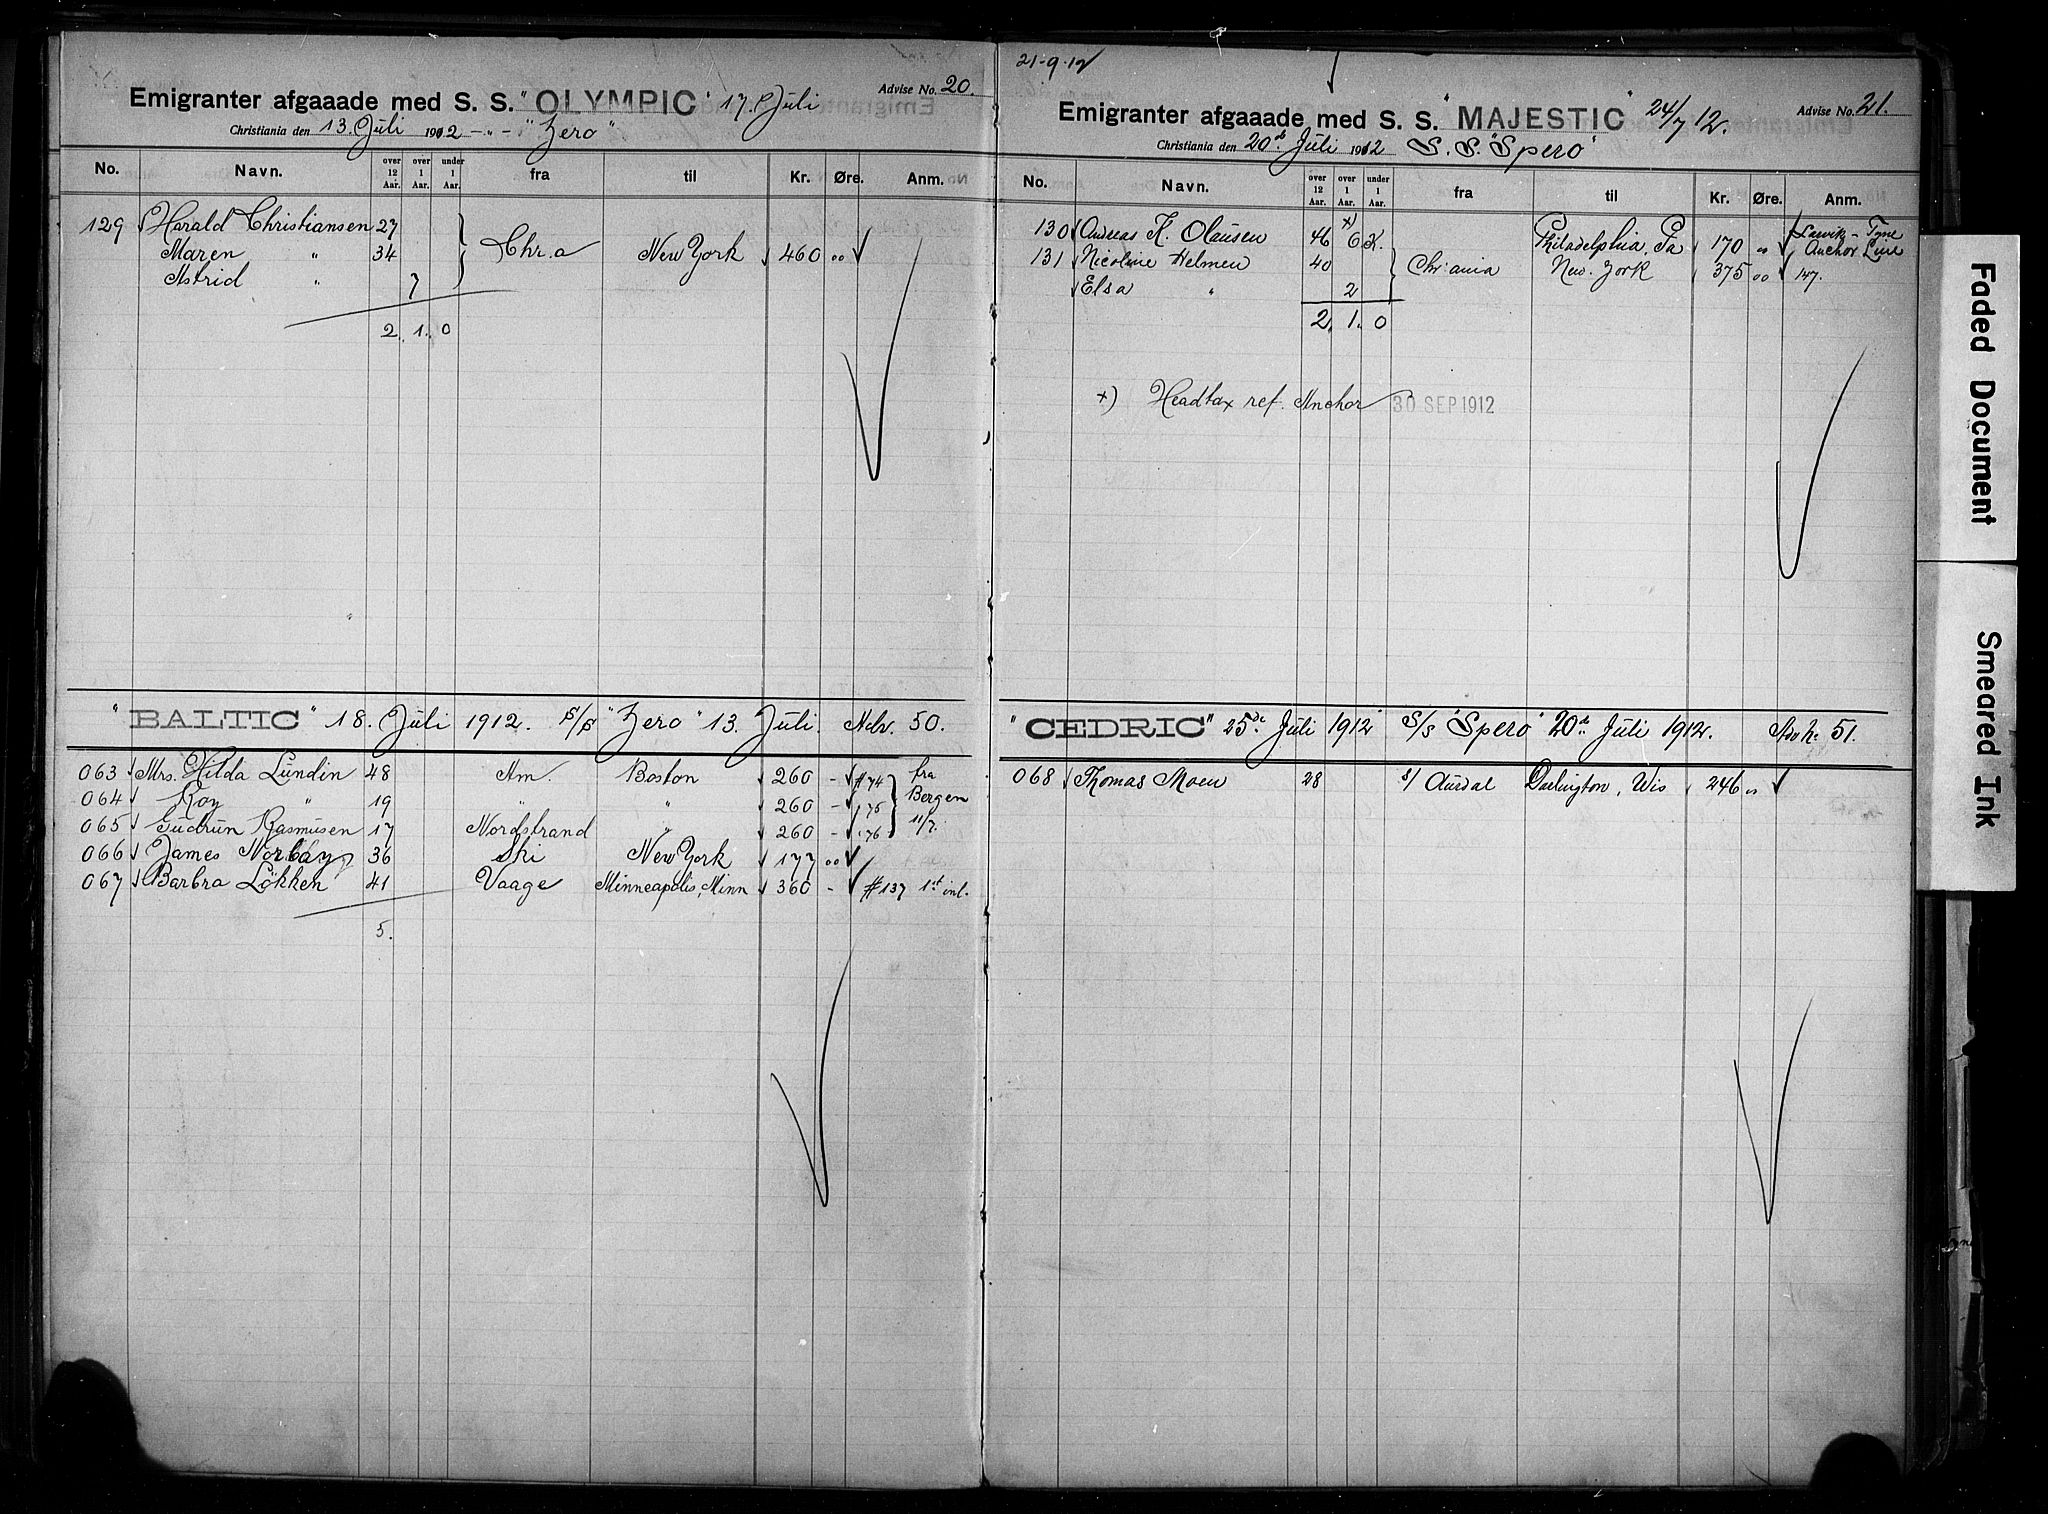 Emigranter afgaaade med S. S. "OLYMPIC" 17. Juli Advise No. 20.
Christiania den 13. Juli 1912 -"- "Zero"
No. Navn. over 12 Aar. over 1 Aar. under 1 Aar. fra til Kr. Øre. Anm.
129 Harald Christiansen 27
Maren " 34 Chr.a New York 460 00
Astrid " 7
2. 1. 0
"BALTIC" 18. Juli 1912. S/S "Zero" 13. Juli. Adv. 50.
063 Mrs. Hilda Lundin 48 Am. Boston 260 - #74 fra
064 Roy " 19 " " 260 - " 75 Bergen
065 Gudrun Rasmusen 17 Nordstrand " 260 - " 76 11/7.
066 James Norbay 36 Ski New York 177 00
067 Barbra Lökken 41 Vaage Minneapolis, Minn 360 - #137 1st inl.
5.
21-9-12
Emigranter afgaaade med S. S. "MAJESTIC" 24/7 12. Advise No. 21.
Christiania den 20de Juli 1912 S. S. "Spero"
No. Navn. over 12 Aar. over 1 Aar. under 1 Aar. fra til Kr. Øre. Anm.
130 Andreas K. Olausen 46 x) O.K. Philadelphia, Pa 170 " Larvik - Tyne Anchor Line
131 Nicoline Helmen 40 Chr.ania New York 375 00 147.
Elsa " 2
2. 1. 0
x) Headtax ref. Anchor 30 SEP 1912
"CEDRIC" 25de Juli 1912 S/S "Spero" 20de Juli 1912. Adv No. 51.
068 Thomas Moen 28 S/ Aurdal Darlington, Wis 246 "
Faded Document
Smeared Ink